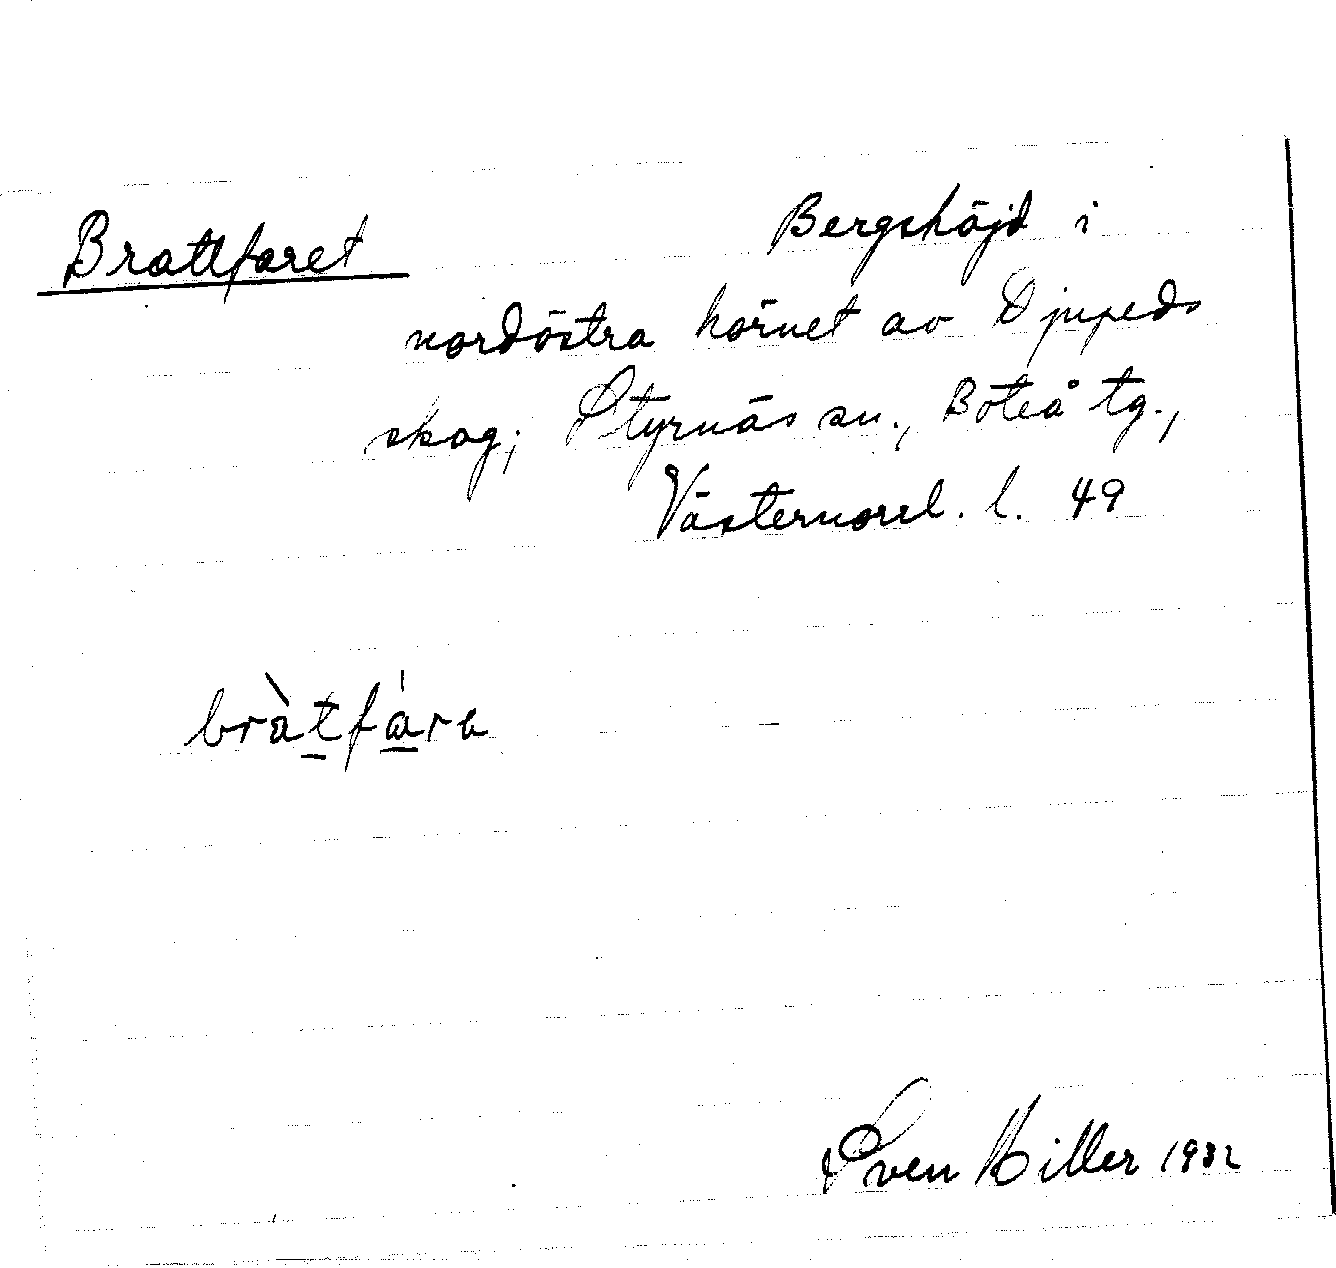 Brattfaret
Bergshöjd i
nordöstra hörnet av Djupeds
skog; Styrnäs sn., Boteå tg.,
Västernorrl. l. 49
bràtfára
Sven Hiller 1932